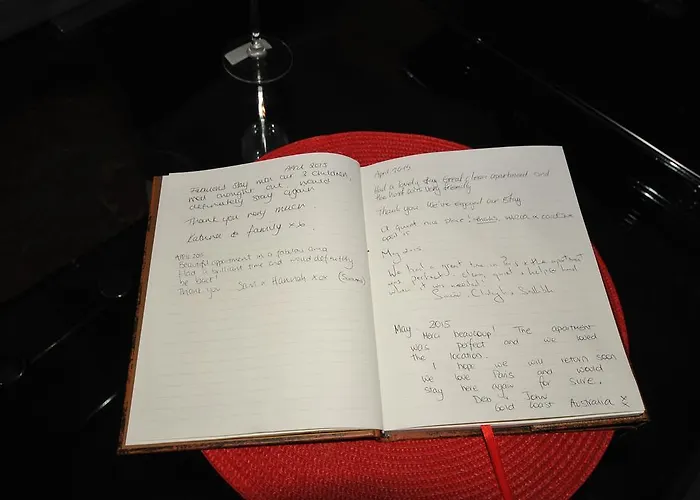 April 2015
Fabulous stay with our 3 children,
well thought out would
definitely stay again
Thank you very much
& family xx
Beautiful apartment in a fabulous area
Had a brilliant time and would definitely
be back!
Thank you Hannah xox
April 2015
Had a lovely stay. Great clean apartment and
the host was very friendly
Thank you we've enjoyed our stay
May 2015
We had a great time in Paris & the apartment
was perfect! clean, quiet & helpful host
when it was needed!
May 2015
Merci beaucoup! The apartment
was perfect and we loved
the location.
I hope we will return soon
we love Paris and would
stay here again for sure.
Deb & John
Gold Coast Australia X